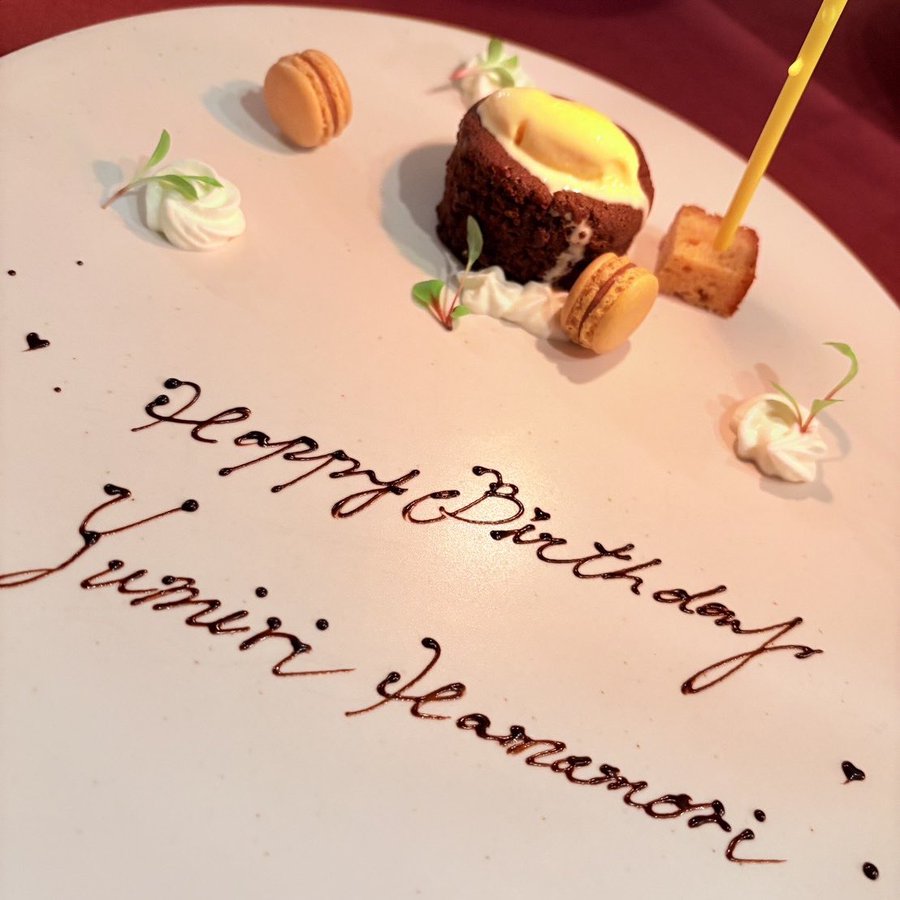 Happy Birthday
Yumiri Hanamori